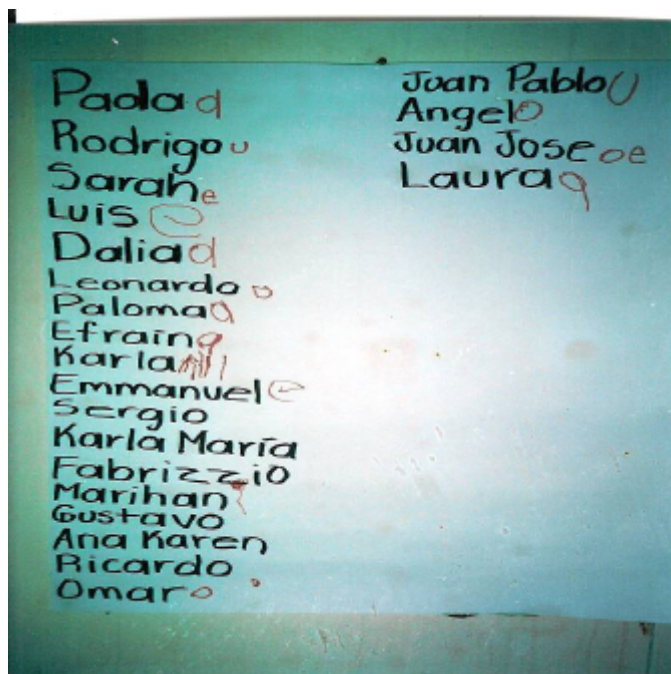 Paola a
Rodrigo u
Sarah e
Luis e
Dalia a
Leonardo o
Paloma a
Efraín a
Karla
Emmanuel e
Sergio
Karla María
Fabrizzio
Marihan
Gustavo
Ana Karen
Ricardo
Omar o
Juan Pablo U
Angel o
Juan Jose oe
Laura a